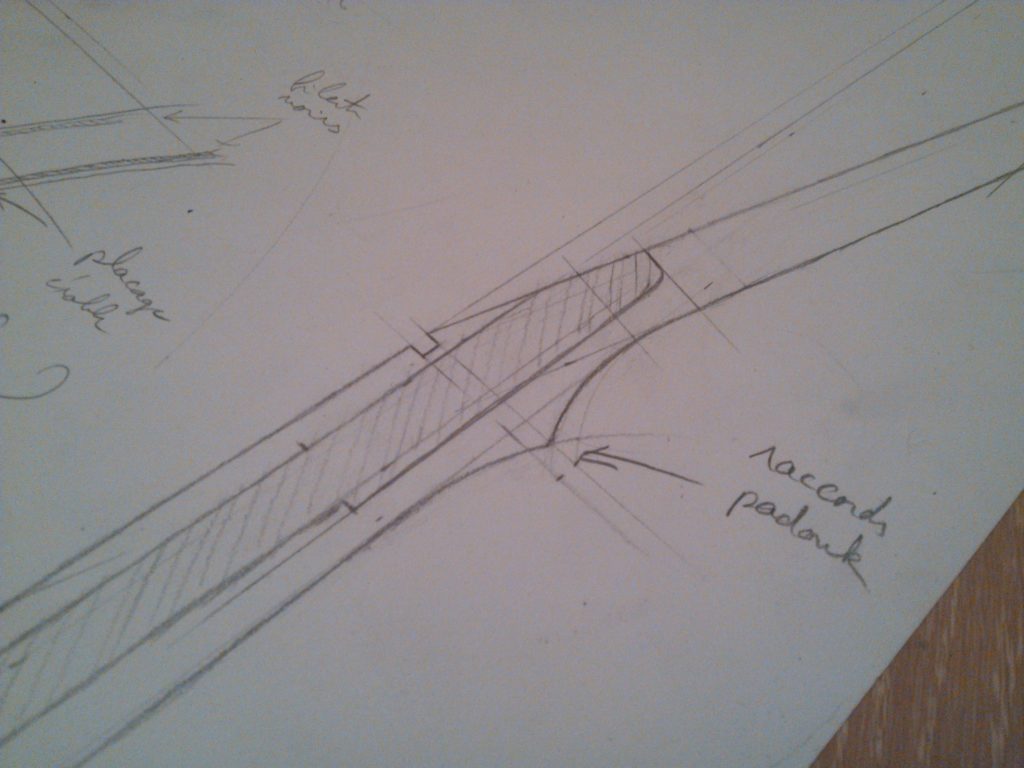 filets
noirs
placage
raccords
padouk